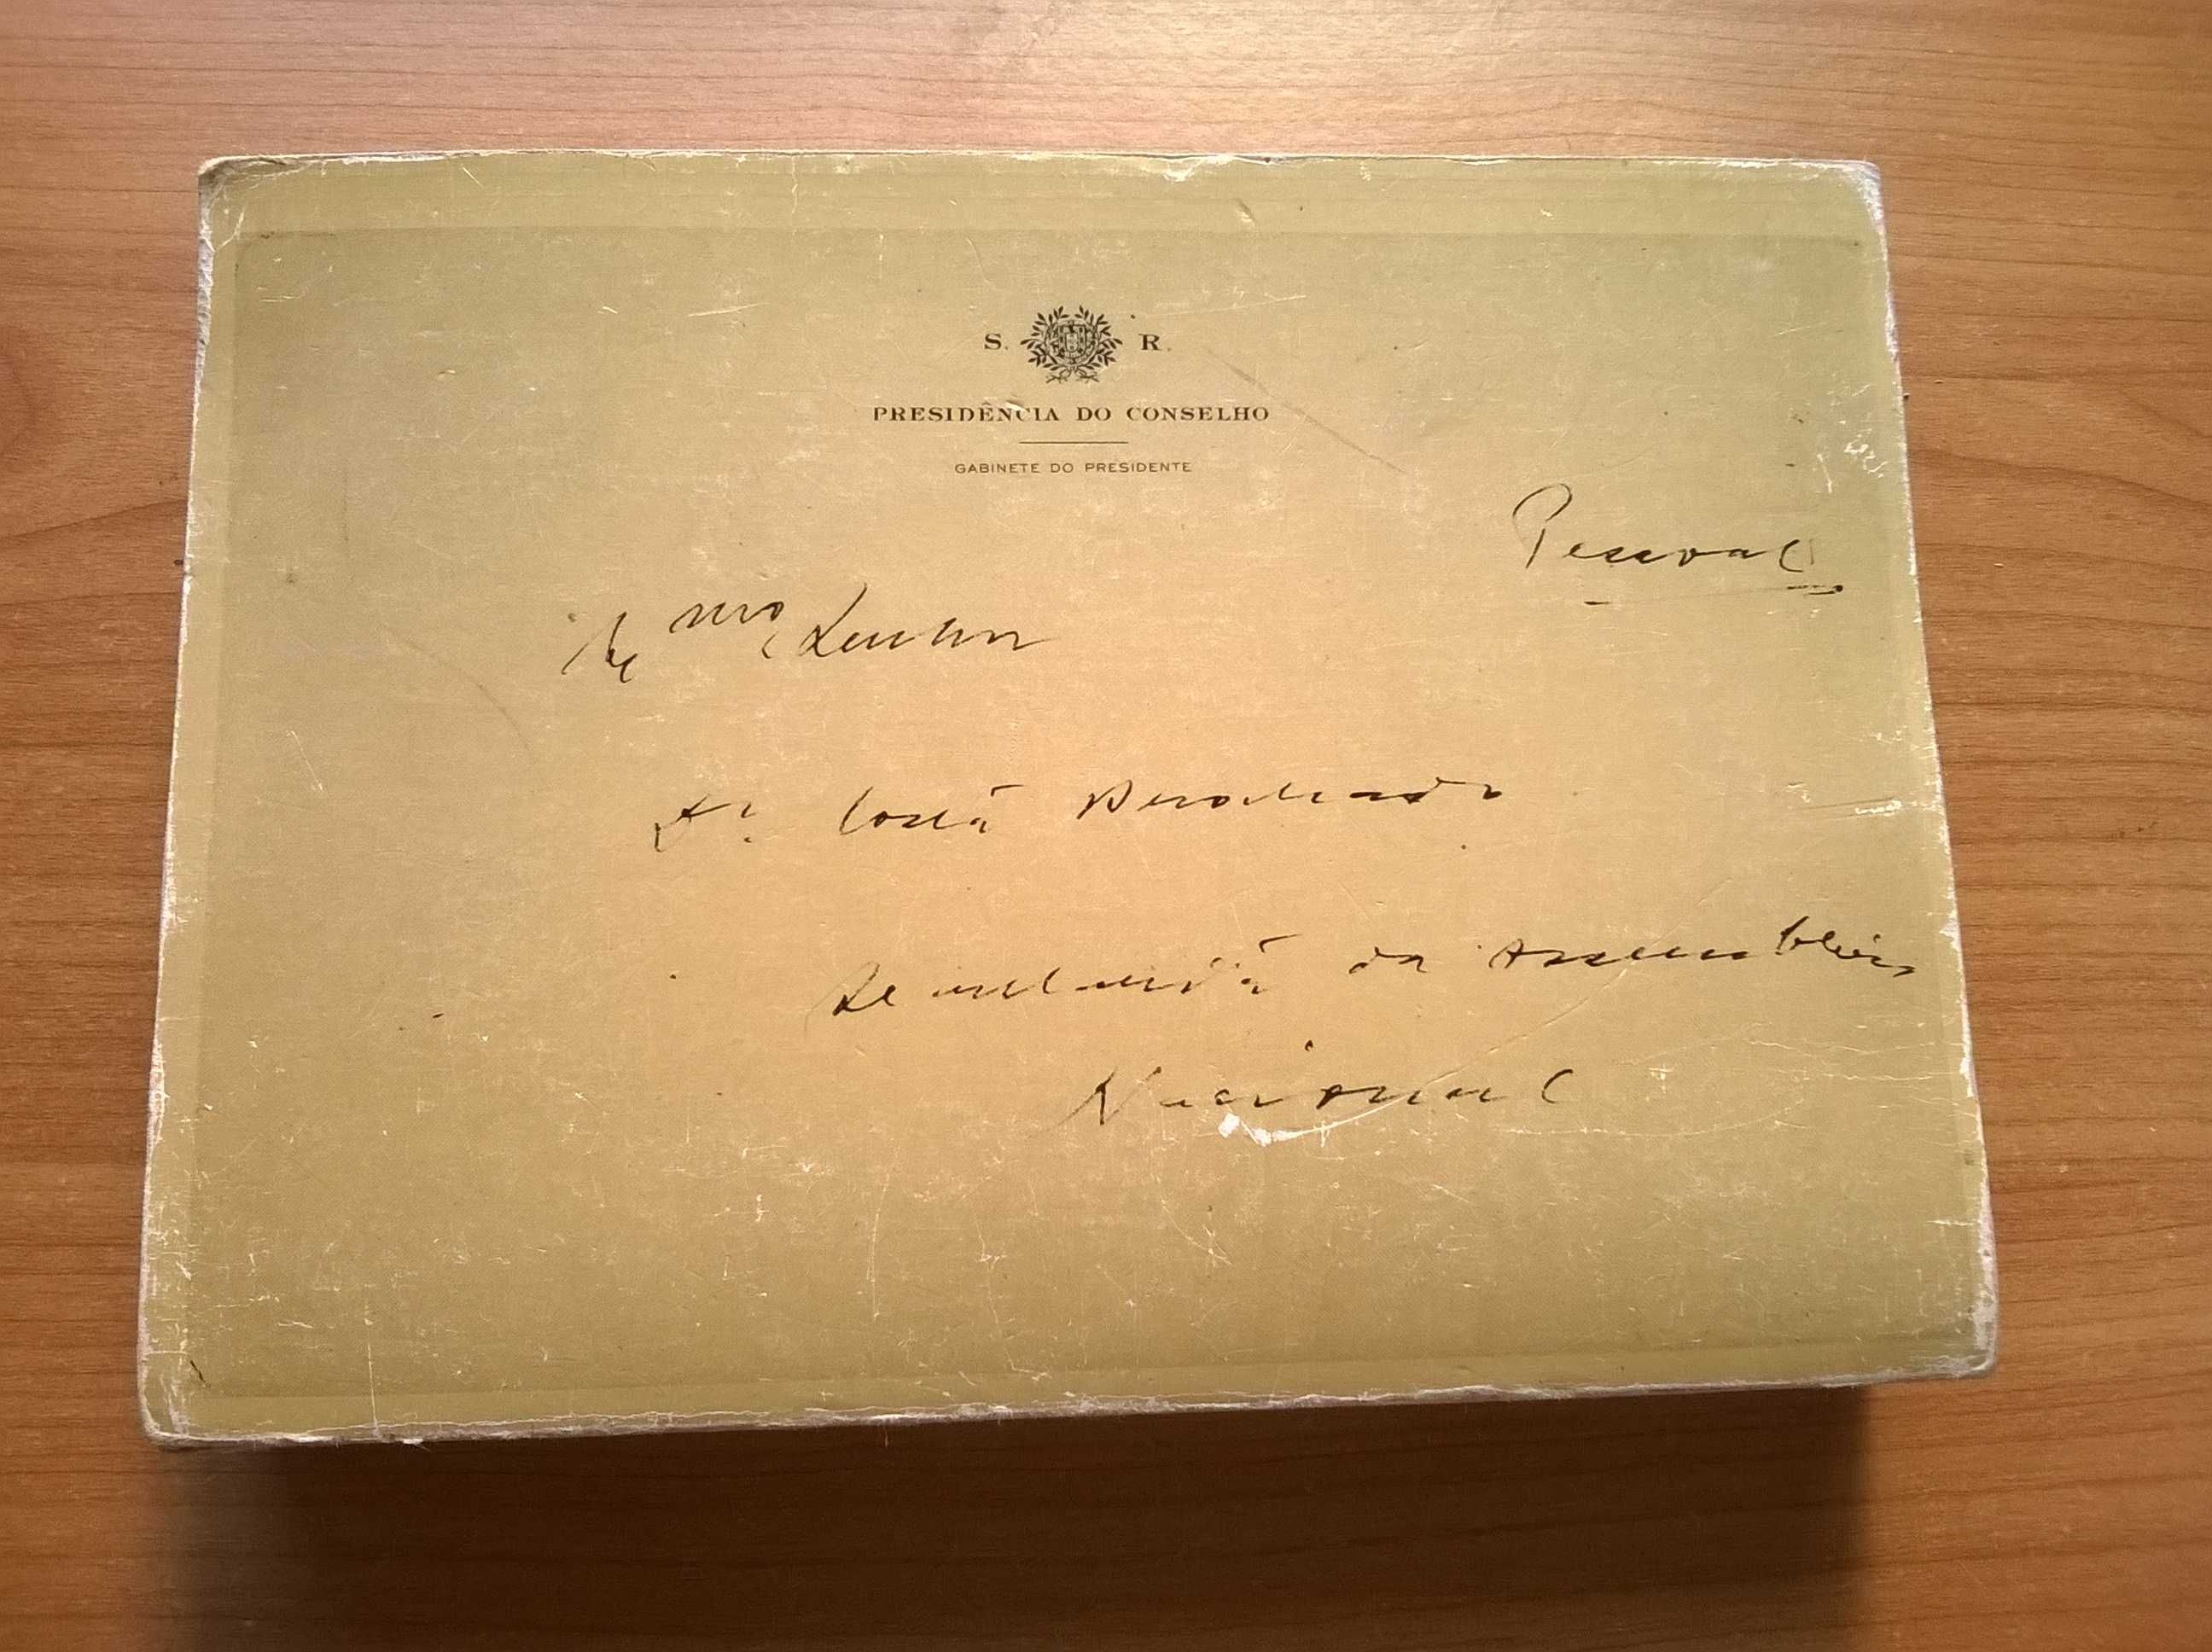 S. R.
PRESIDÊNCIA DO CONSELHO
GABINETE DO PRESIDENTE
Pessoal
Ex mo Senhor
Dr. Costa Brochado
Secretaria da Assembleia
Nacional